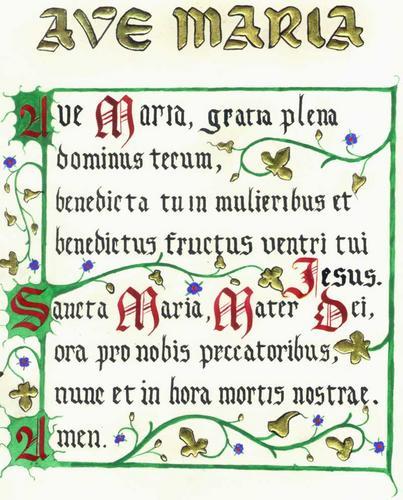 AVE MARIA
Ave Maria, gratia plena
dominus tecum,
benedicta tu in mulieribus et
benedictus fructus ventri tui
Jesus.
Sancta Maria, Mater Dei,
ora pro nobis peccatoribus,
nunc et in hora mortis nostrae.
Amen.